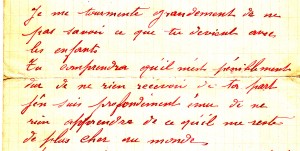 Je me tourmente grandement de ne
pas savoir ce que tu devient avec
les enfants
Tu comprendra qu'il m'est péniblement
dur de ne rien recevoir de toi part
j'en suis profondement emu de ne
rien apprendre de ce qu'il me reste
de plus cher au monde